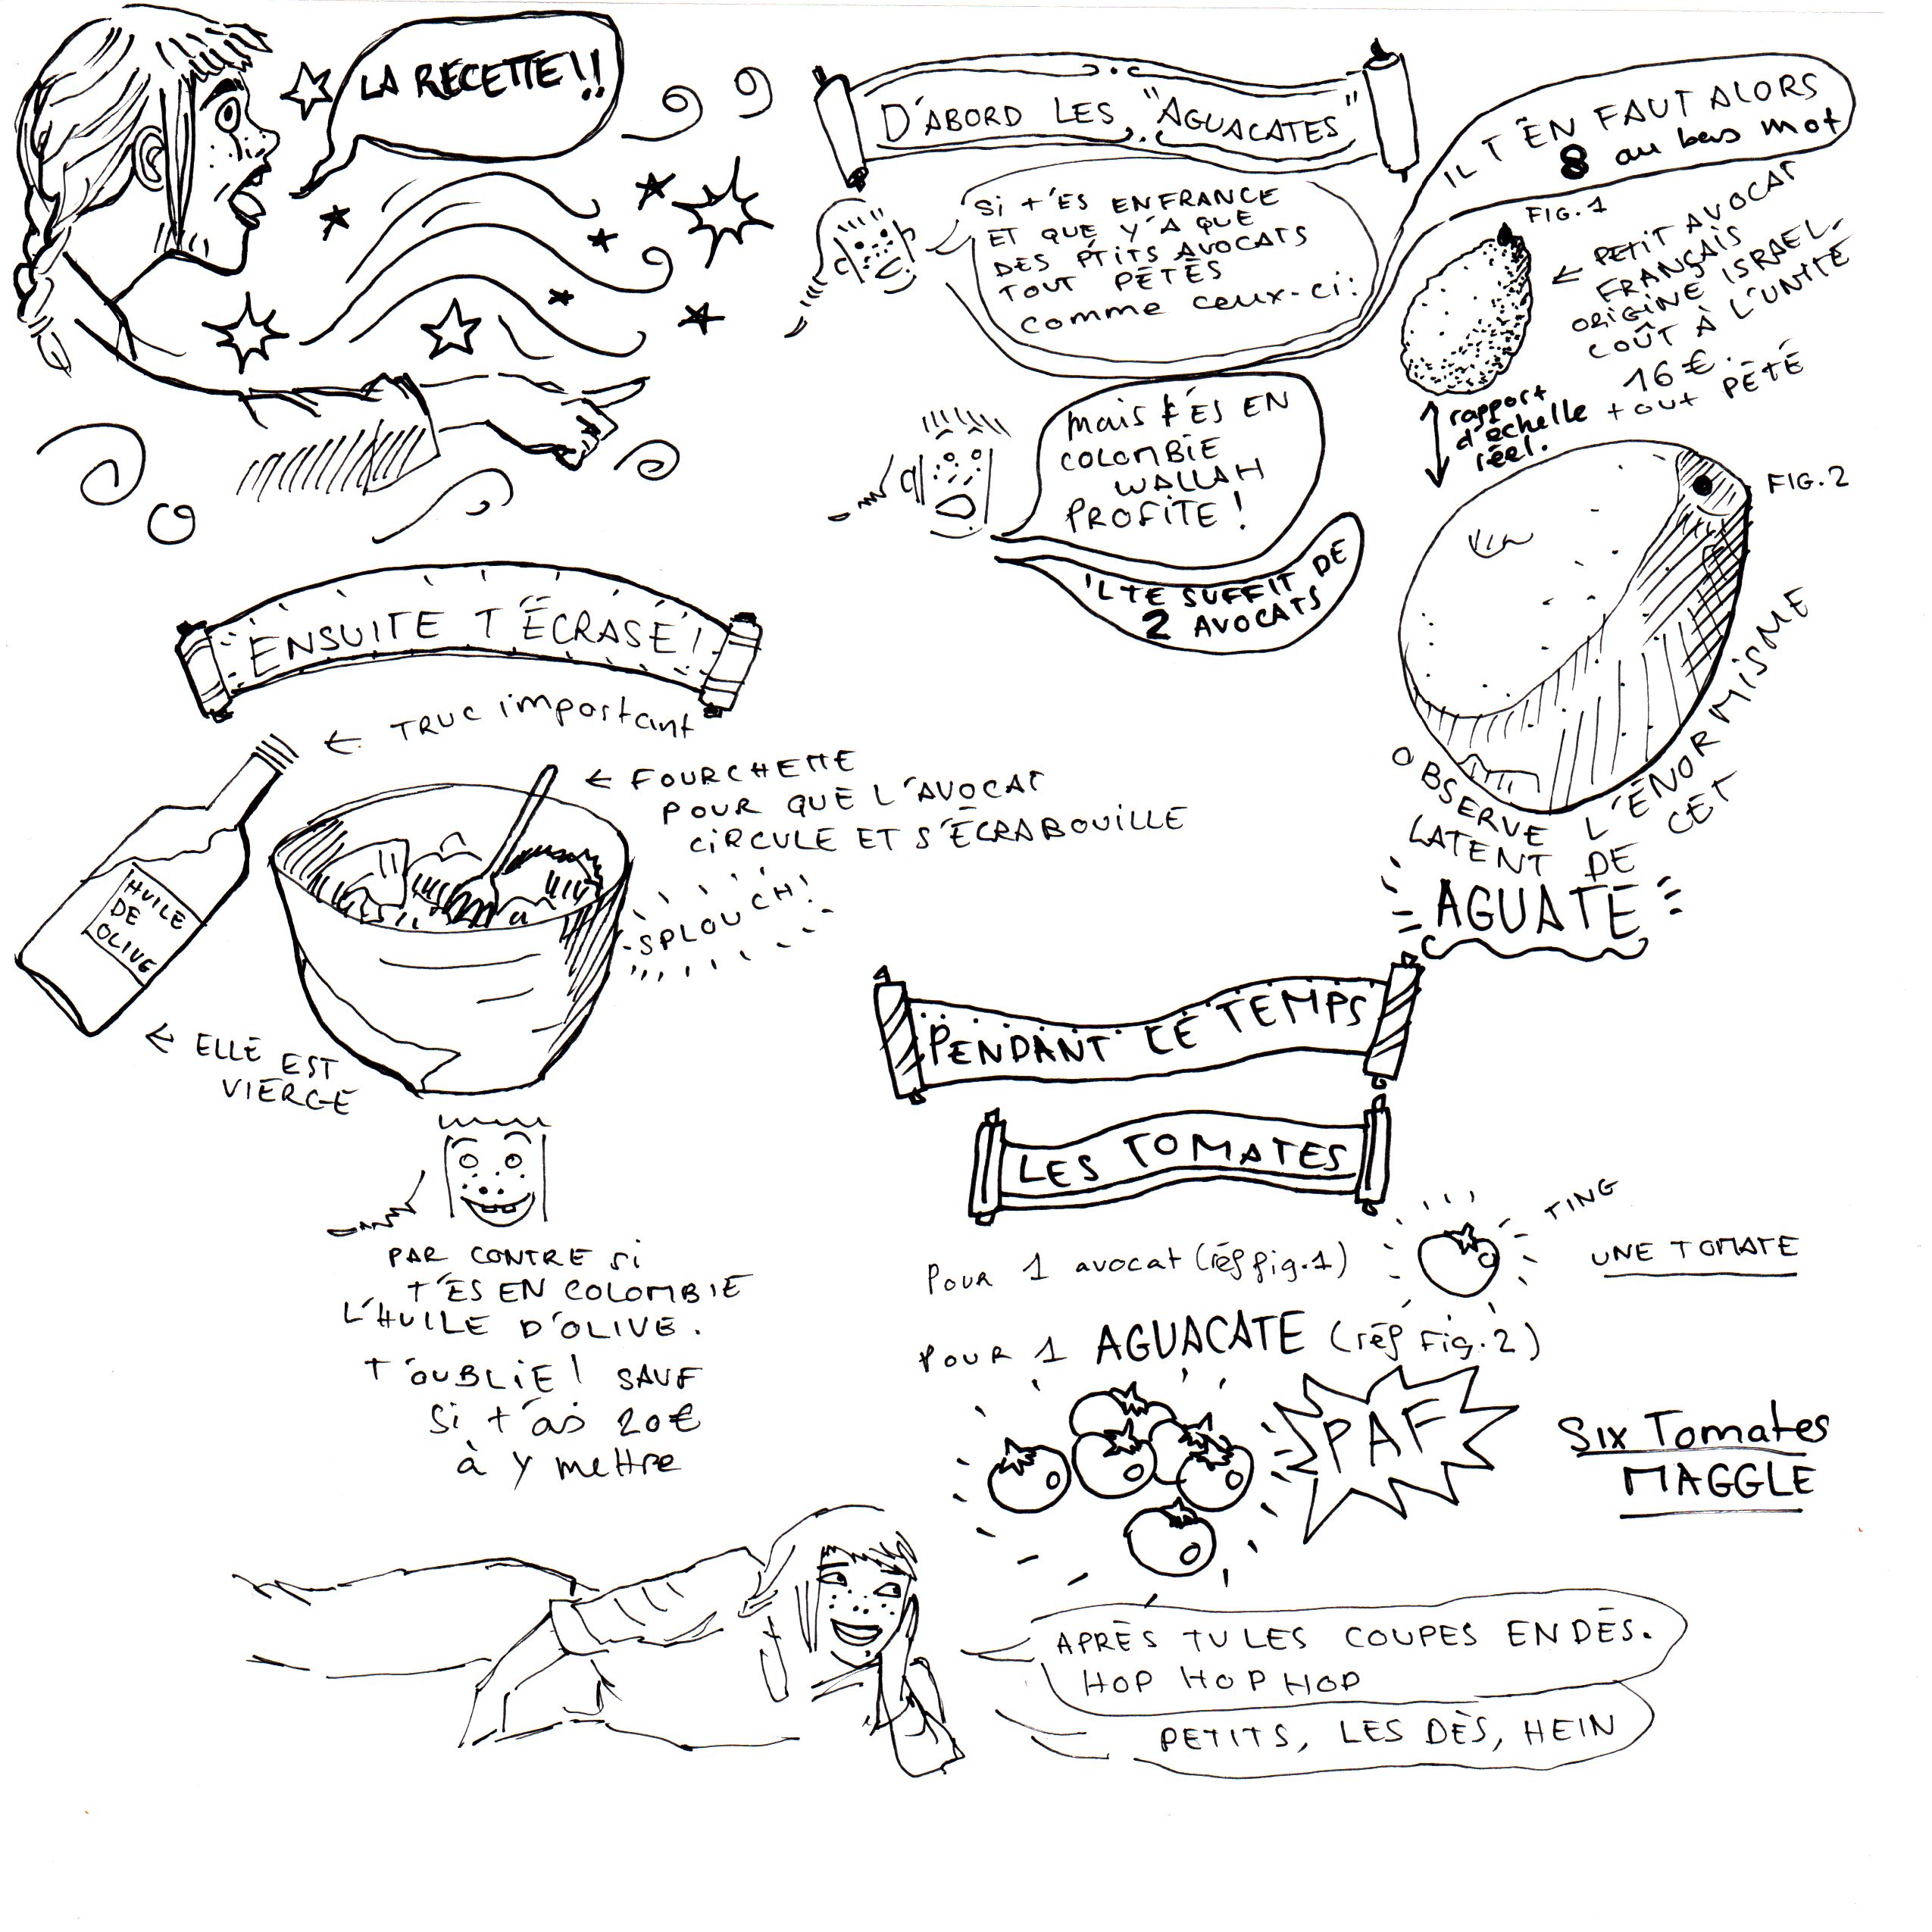 LA RECETTE!!
D'ABORD LES "AGUACATES"
Si t'ES EN FRANCE
ET QUE Y'A QUE
DES PTITS AVOCATS
TOUT PÉTÉS
comme ceux-ci:
IL T'EN FAUT ALORS
8 au bas mot
FIG.1
← PETIT AVOCAT
FRANÇAIS
ORIGINE ISRAEL.
COÛT À L'UNITÉ
16€.
tout PÉTÉ
rapport
d'échelle
réel.
Mais t'ES EN
COLOMBIE
WALLAH
PROFITE!
'L TE SUFFIT DE
2 AVOCATS
FIG.2
OBSERVE L'ÉNORMISME
LATENT DE CET
AGUATE
ENSUITE T'ÉCRASE!
← TRUC important
← FOURCHETTE
POUR QUE L'AVOCAT
CIRCULE ET S'ÉCRABOUILLE
HUILE
DE
OLIVE
SPLOUCH!
← ELLE EST
VIERGE
PAR CONTRE Si
T'ES EN COLOMBIE
L'HUILE D'OLIVE.
T'OUBLIE! SAUF
Si t'as 20€
à y mettre
PENDANT CE TEMPS
LES TOMATES
Pour 1 avocat (réf fig.1)
TING
UNE TOMATE
POUR 1 AGUACATE (réf Fig.2)
PAF
Six Tomates
MAGGLE
APRÈS TU LES COUPES EN DÉS.
HOP HOP HOP
PETITS, LES DÈS, HEIN